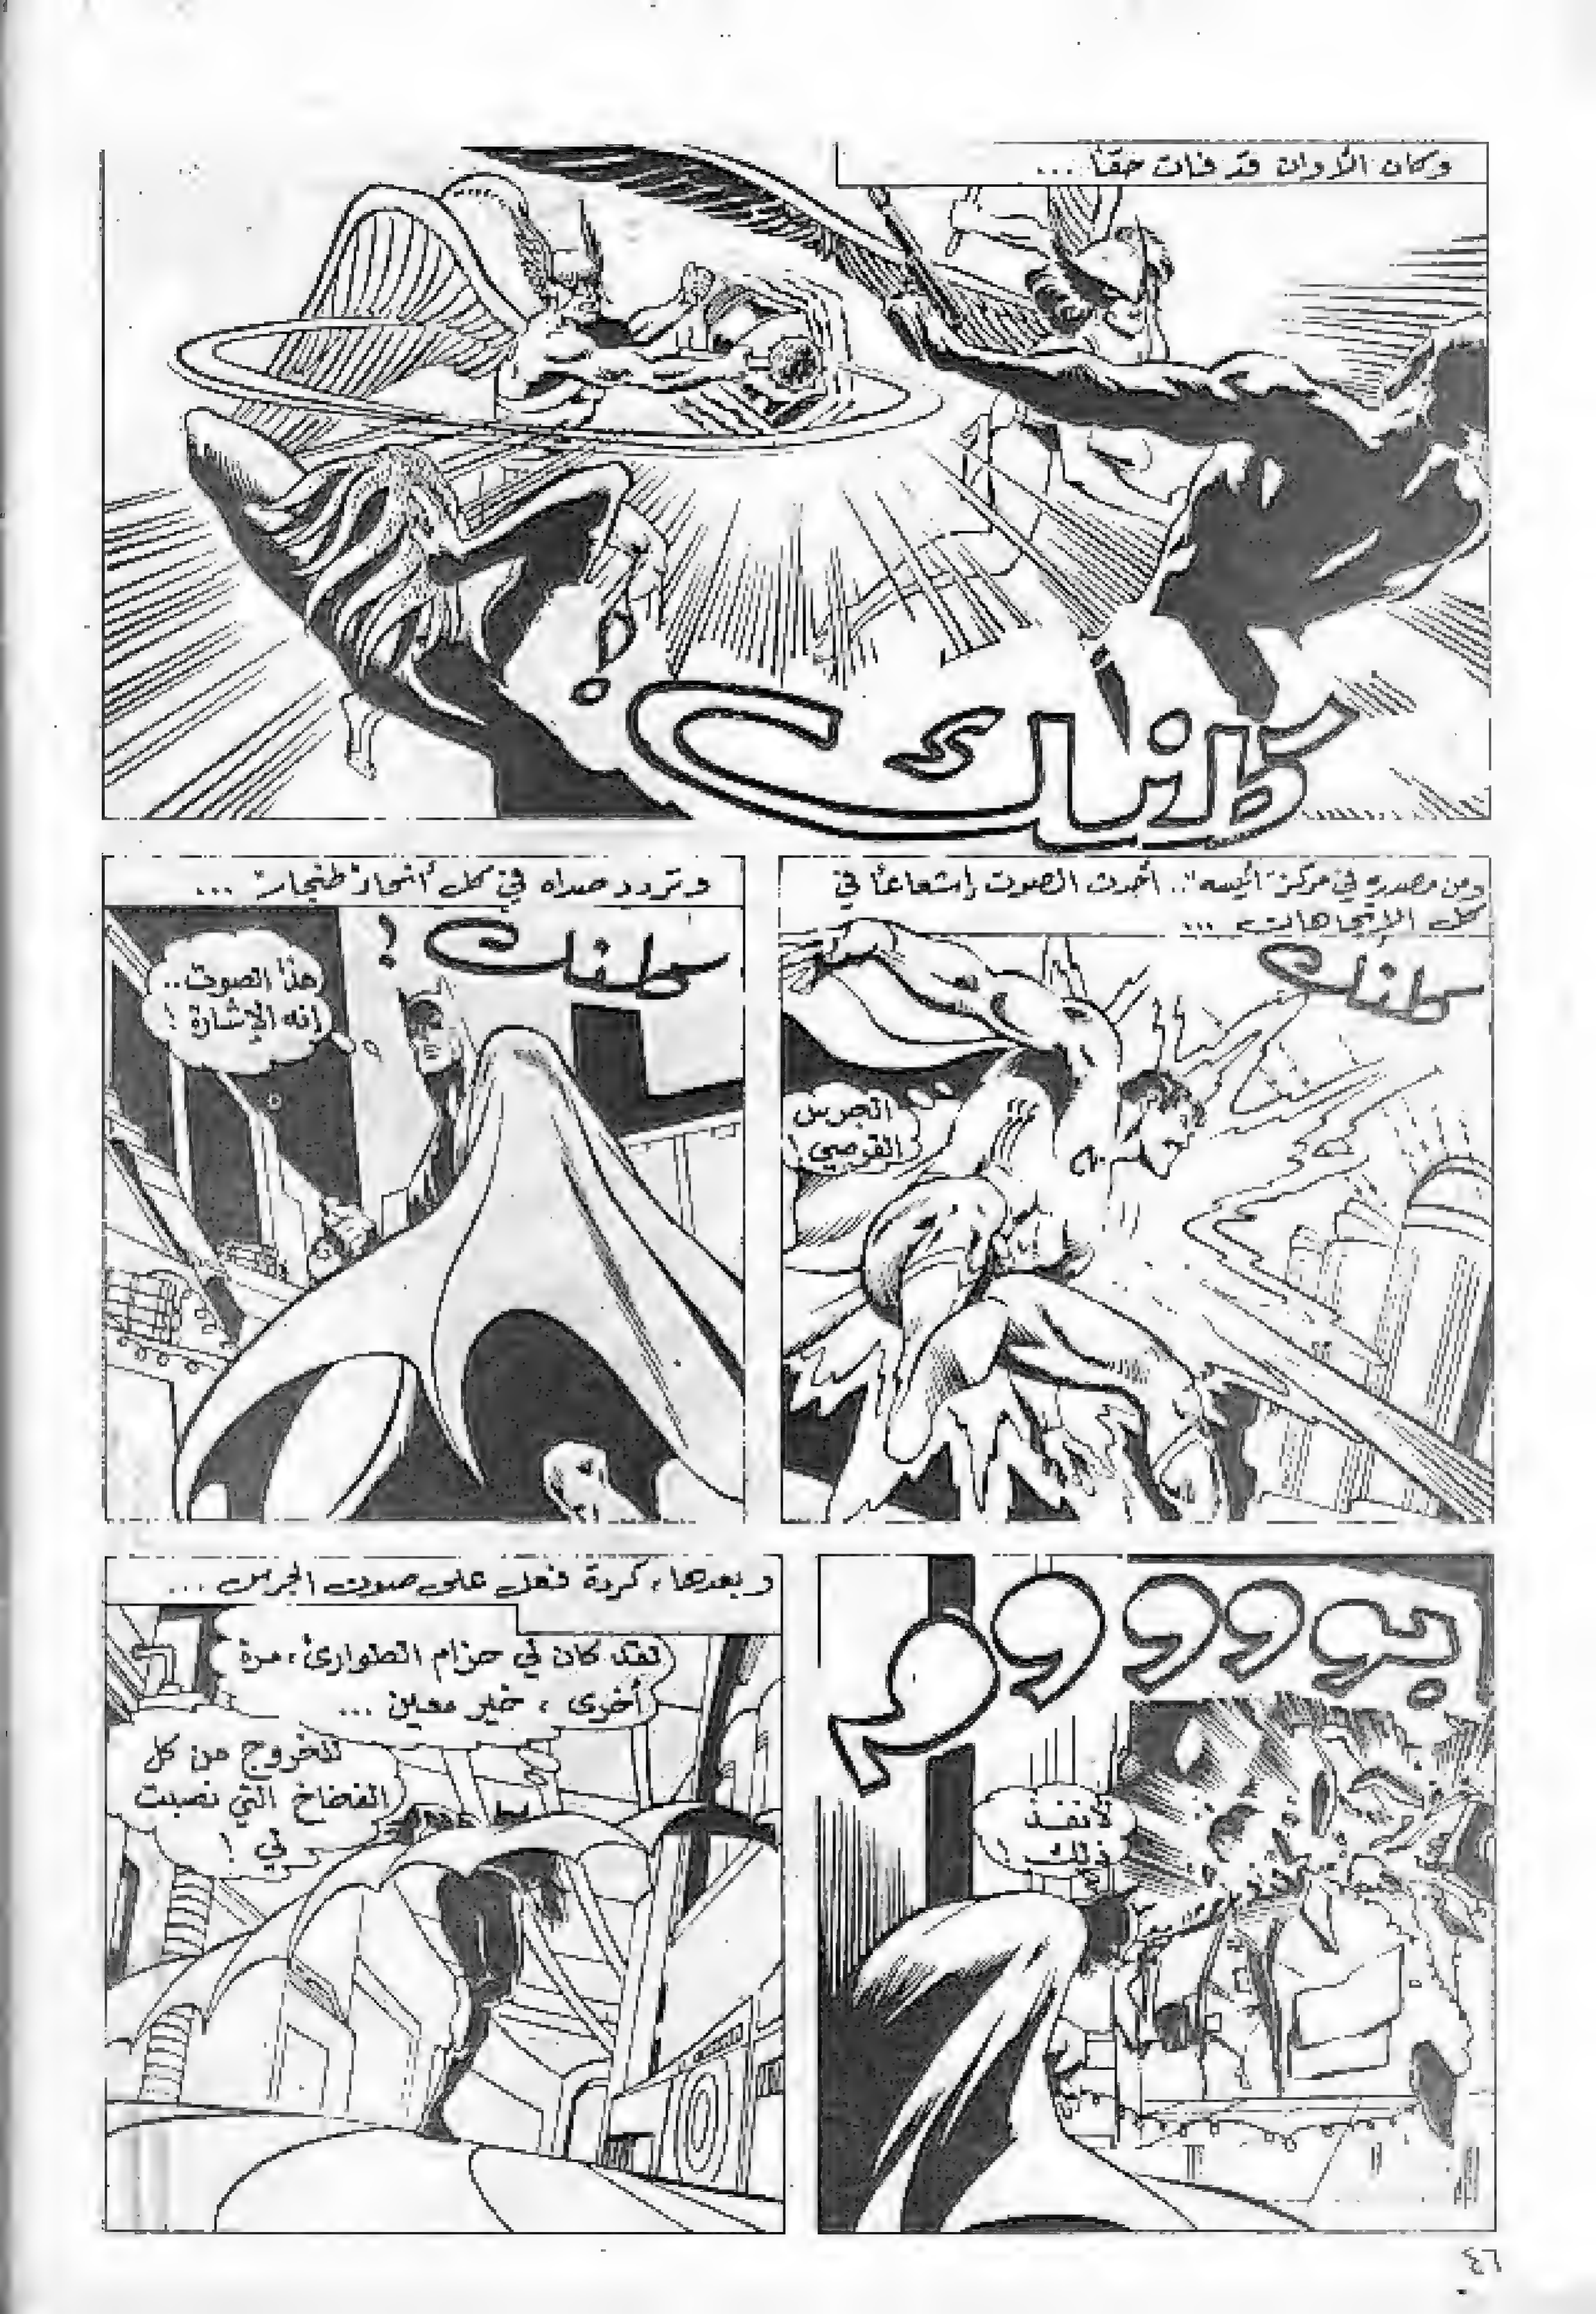 وكان الأوان قد فات حقًا ...
كلنك !
ومن مصدره في مركز .. أحدث الصوت إشعاعًا في
كل الإتجاهات ...
كلنك
الجرس
القرصي !
وتردد صداه في كل أنحاء ...
كلنك !
هذا الصوت ..
إنه الإشارة !
بوووووم
لأنفذ
ذلك !
وبعدها ، كردة فعل على صوت الجرس ...
لقد كان لي حزام الطوارئ ، مرة
أخرى ، خير معين ...
للخروج من كل
الفخاخ التي نصبت
لي !
٤٦